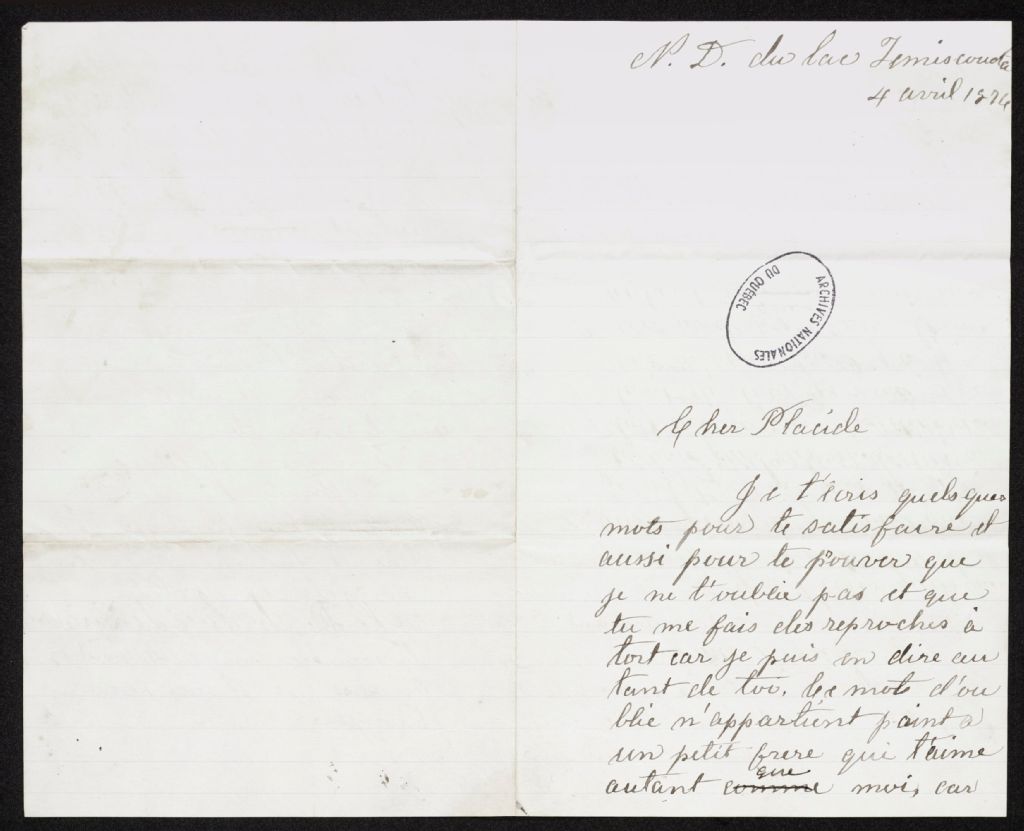 N. D. du lac Temiscouata
4 avril 18
ARCHIVES NATIONALES
DU QUÉBEC
Cher Placide
Je t'écris quelsques
mots pour te satisfaire et
aussi pour te pouver que
je ne t'oublie pas et que
tu me fais des reproches à
tort car je puis en dire au
tant de toi. Ce mots d'ou
blie n'appartient point a
un petit frere qui t'aime
que
autant comme moi, car